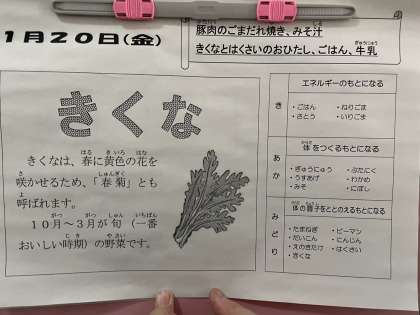 1月20日(金)
豚肉のごまだれ焼き、みそ汁
きくなとはくさいのおひたし、ごはん、牛乳
きくな
きくなは、春に黄色の花を
咲かせるため、「春菊」とも
呼ばれます。
10月～3月が旬（一番
おいしい時期）の野菜です。
き
エネルギーのもとになる
・ごはん ・ねりごま
・さとう ・いりごま
あか
体をつくるもとになる
・ぎゅうにゅう ・ぶたにく
・うすあげ ・わかめ
・みそ ・にぼし
みどり
体の調子をととのえるもとになる
・たまねぎ ・ピーマン
・だいこん ・にんじん
・えのきたけ ・はくさい
・きくな